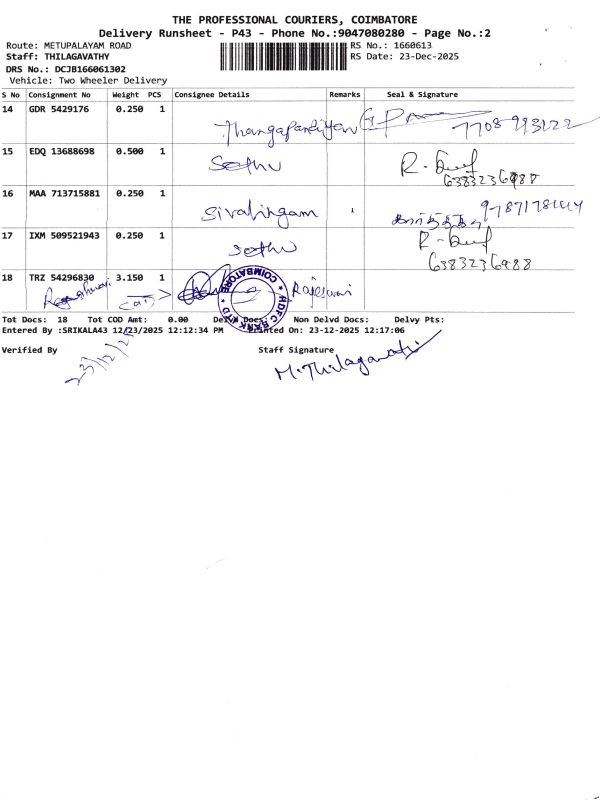 THE PROFESSIONAL COURIERS, COIMBATORE
Delivery Runsheet - P43 - Phone No.:9047080280 - Page No.:2
Route: METUPALAYAM ROAD RS No.: 1660613
Staff: THILAGAVATHY RS Date: 23-Dec-2025
DRS No.: DCJB166061302
Vehicle: Two Wheeler Delivery
S No Consignment No Weight PCS Consignee Details Remarks Seal & Signature
14 GDR 5429176 0.250 1
Thangapandiyan 7708993122
15 EDQ 13688698 0.500 1
Sethu
6383236988
16 MAA 713715881 0.250 1
Sivalingam
17 IXM 509521943 0.250 1
Sethu
6383236988
18 TRZ 54296830 3.150 1
Rajeswari
HDFC BANK LTD COIMBATORE
Tot Docs: 18 Tot COD Amt: 0.00 Delvd Docs: Non Delvd Docs: Delvy Pts:
Entered By :SRIKALA43 12/23/2025 12:12:34 PM Printed On: 23-12-2025 12:17:06
Verified By Staff Signature
23/12/25 M.Thilagavathi